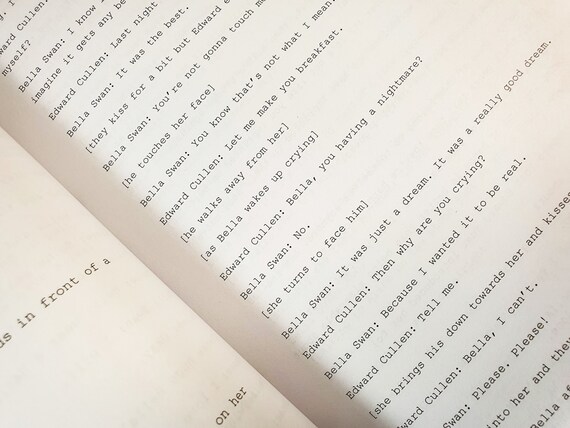 s in front of a
on her
Edward Cullen:
myself?
Bella Swan: I know I
imagine it gets any be
Edward Cullen: Last night
Bella Swan: It was the best.
[they kiss for a bit but Edward e
Bella Swan: You're not gonna touch m
[he touches her face]
Bella Swan: You know that's not what I mean.
Edward Cullen: Let me make you breakfast.
[he walks away from her]
[as Bella wakes up crying]
Edward Cullen: Bella, you having a nightmare?
Bella Swan: No.
[she turns to face him]
Bella Swan: It was just a dream. It was a really good dream.
Edward Cullen: Then why are you crying?
Bella Swan: Because I wanted it to be real.
Edward Cullen: Tell me.
[she brings his down towards her and kisses
Edward Cullen: Bella, I can't.
Swan: Please. Please!
into her and the
Bella af